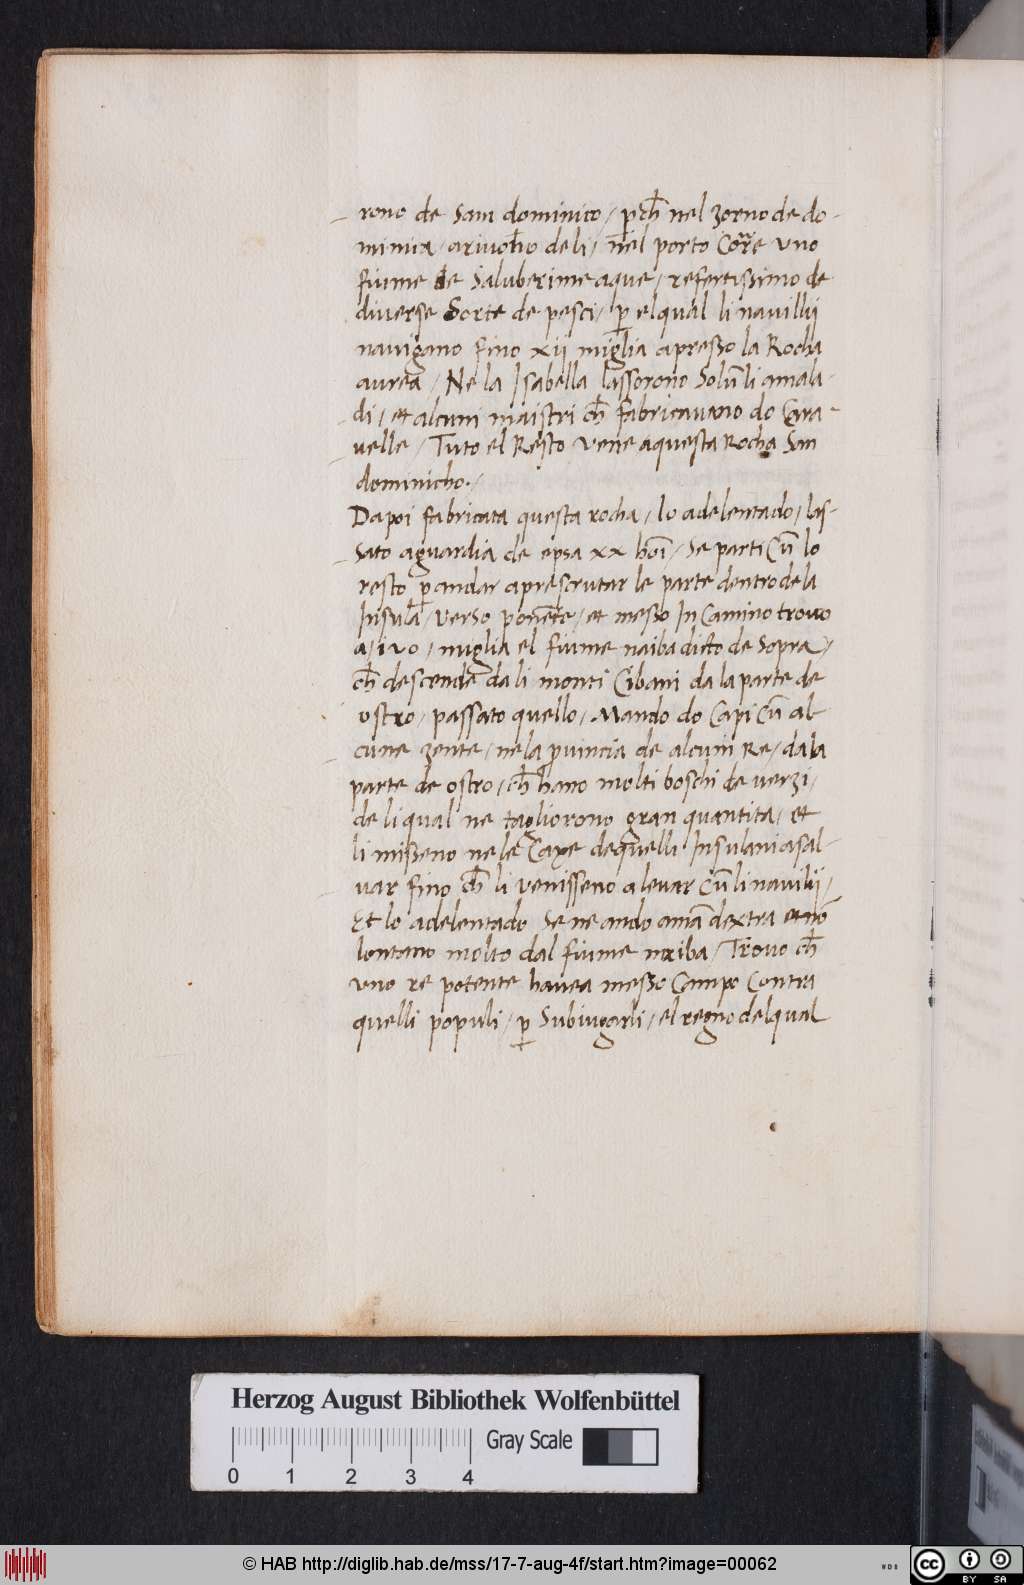 rono de San dominico / p̱ch̄ nel zorno de do-
minica arivoro̅ de li / nel porto Cor̅e uno
fiume de Saluberime aque / refertissimo de
diverse Sorte de pesci / p̱ el qual li navillij
navigano fino xij miglia apresso la Rocha
aurea / Ne la Isabella lassorono Solu̅ li amala-
di / et alcuni maistri ch̄ fabricavano do Cara-
velle / Tuto el Resto vene a questa Rocha San
dominicho. /
Dapoi fabricata questa rocha / lo adelentado / las-
sato a guardia de epsa xx ho̅i̅ / Se parti Cu̅ lo
resto p̱ andar a prescrutar le parte dentro de la
Insula / verso pone̅te / et messo In Camino trovo
a / miglia el fiume naiba dicto de Sopra /
ch̄ descende da li monti Cibani da la parte de
ostro / passato quello / Mando do Capi Cu̅ al-
cune zente / ne la p̱vincia de alcuni Re / da la
parte de ostro / ch̄ hano molti boschi de verzi /
de li qual ne tagliorono gran quantita / et
li misseno ne le Caxe de quelli Insulani a sal-
var fino ch̄ li venisseno a levar Cu̅ li navilij /
Et lo adelentado Se ne ando a ma̅ dextra et no̅
lontano molto dal fiume naiba / Trovo ch̄
uno re potente havea messo Campo Contra
quelli populi / p̱ Subiugarli / el regno del qual
Herzog August Bibliothek Wolfenbüttel
Gray Scale
0 1 2 3 4
© HAB http://diglib.hab.de/mss/17-7-aug-4f/start.htm?image=00062
WDB
cc BY SA